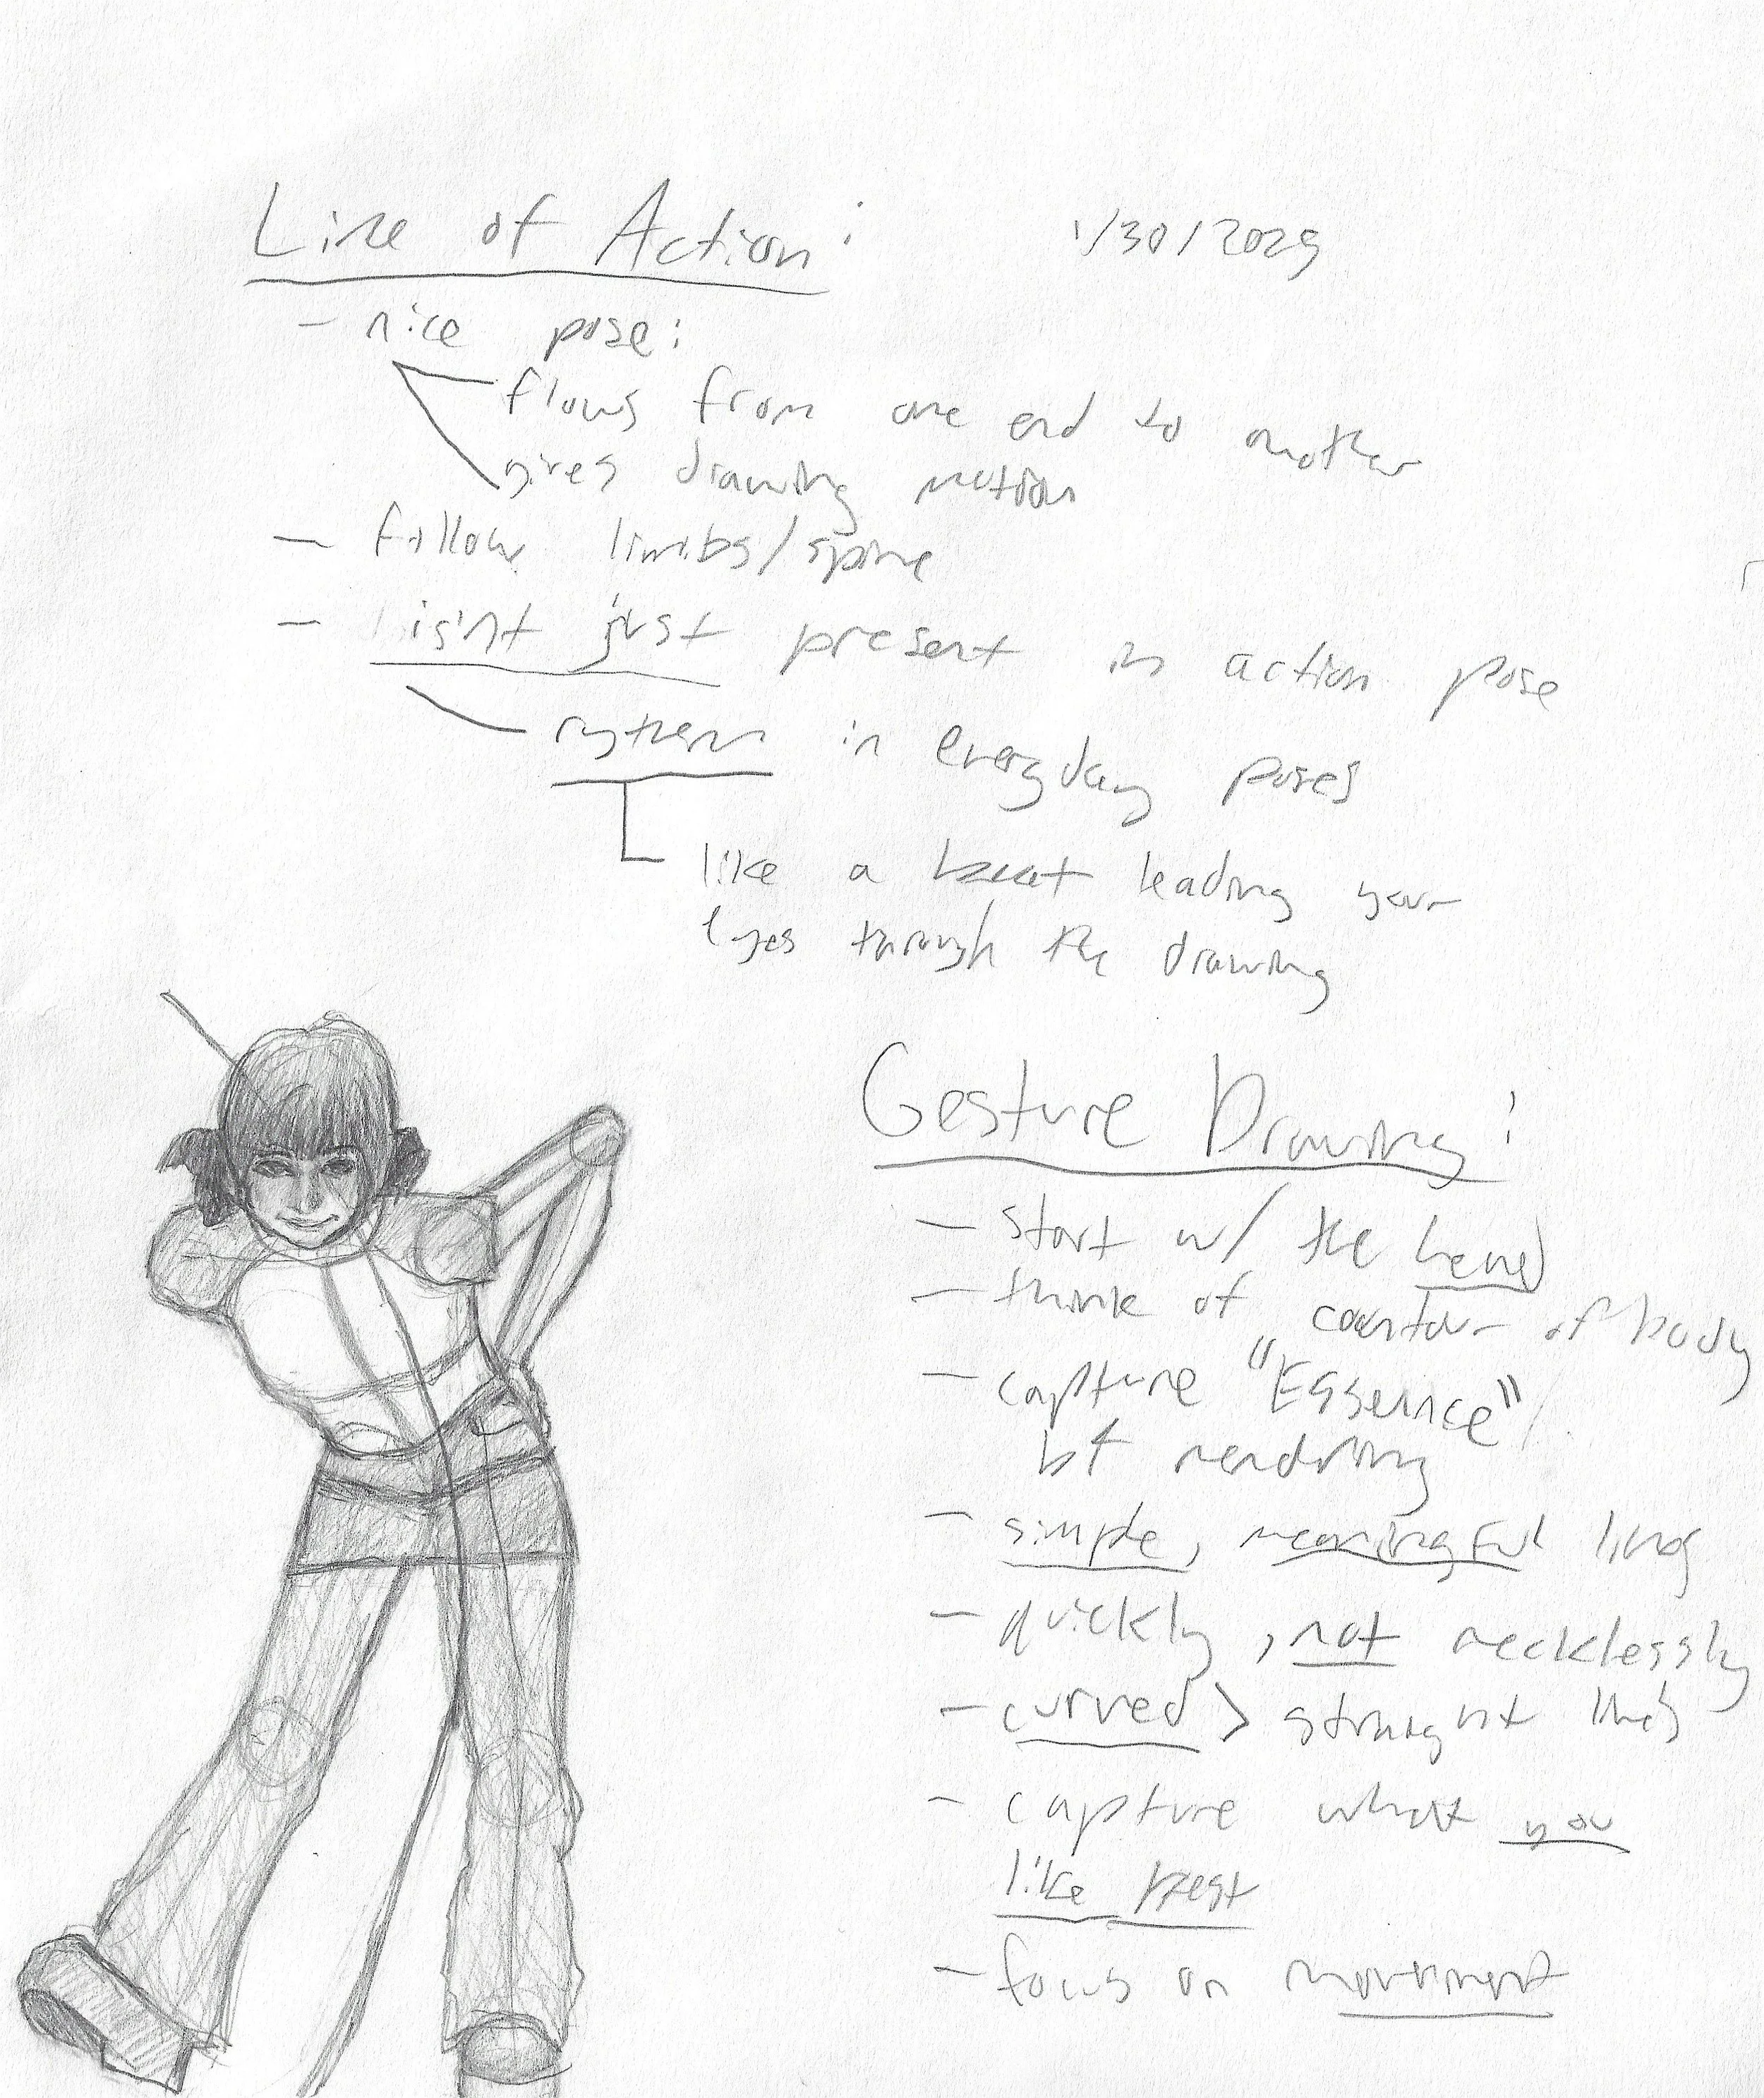 Line of Action:
1/30/2025
- nice pose:
flows from one end to another
gives drawing motion
- follow limbs/spine
- isn't just present in action pose
rythem in everyday poses
like a beat leading your
eyes through the drawing
Gesture Drawing:
- start w/ the head
- think of contour of body
- capture "Essence"
b4 rendring
- simple, meaningful lines
- quickly, not recklessly
- curved > straight lines
- capture what you
like best
- focus on movement